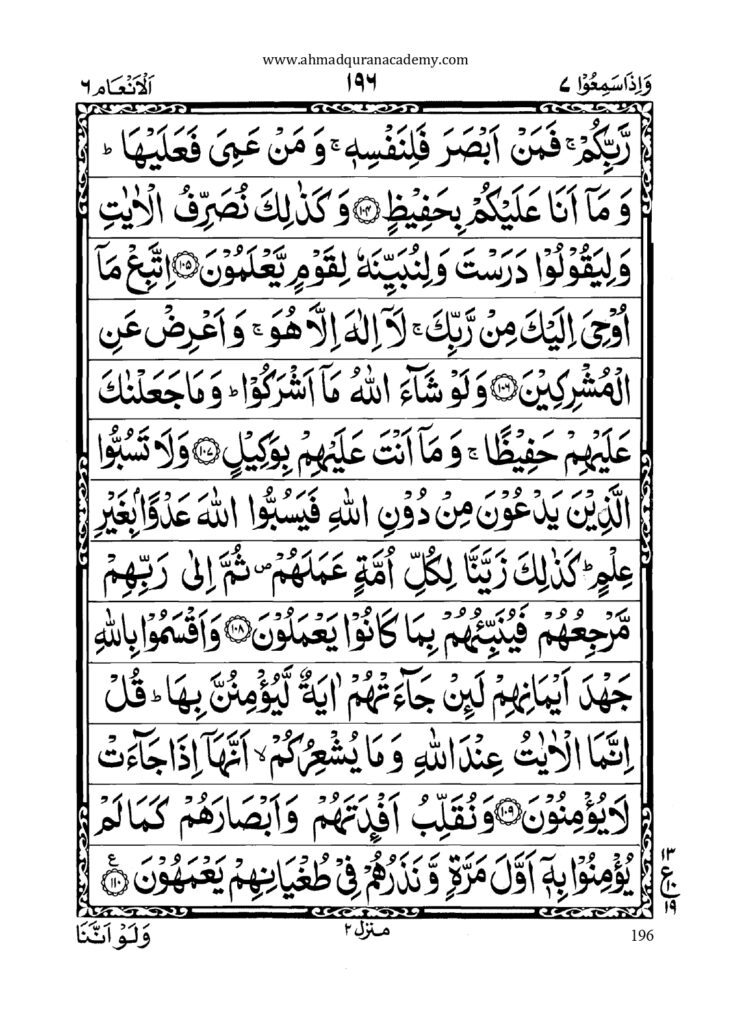 www.ahmadquranacademy.com
وَاِذَاسَمِعُوۡا ۷ ۱۹۶ اَلۡاَنۡعَام ۶
رَّبِّكُمۡ ۚ فَمَنۡ اَبۡصَرَ فَلِنَفۡسِهٖ ۚ وَ مَنۡ عَمِىَ فَعَلَيۡهَا ؕ
وَ مَاۤ اَنَا عَلَيۡكُمۡ بِحَفِيۡظٍ ۱۰۴ وَ كَذٰلِكَ نُصَرِّفُ الۡاٰيٰتِ
وَلِيَقُوۡلُوۡا دَرَسۡتَ وَلِنُبَيِّنَهٗ لِقَوۡمٍ يَّعۡلَمُوۡنَ ۱۰۵ اِتَّبِعۡ مَاۤ
اُوۡحِىَ اِلَيۡكَ مِنۡ رَّبِّكَ ۚ لَاۤ اِلٰهَ اِلَّا هُوَ ۚ وَ اَعۡرِضۡ عَنِ
الۡمُشۡرِكِيۡنَ ۱۰۶ وَ لَوۡ شَآءَ اللّٰهُ مَاۤ اَشۡرَكُوۡا ؕ وَ مَا جَعَلۡنٰكَ
عَلَيۡهِمۡ حَفِيۡظًا ۚ وَ مَاۤ اَنۡتَ عَلَيۡهِمۡ بِوَكِيۡلٍ ۱۰۷ وَلَا تَسُبُّوا
الَّذِيۡنَ يَدۡعُوۡنَ مِنۡ دُوۡنِ اللّٰهِ فَيَسُبُّوا اللّٰهَ عَدۡوًۢا بِغَيۡرِ
عِلۡمٍ ؕ كَذٰلِكَ زَيَّنَّا لِكُلِّ اُمَّةٍ عَمَلَهُمۡ ۪ ثُمَّ اِلٰى رَبِّهِمۡ
مَّرۡجِعُهُمۡ فَيُنَبِّئُهُمۡ بِمَا كَانُوۡا يَعۡمَلُوۡنَ ۱۰۸ وَاَقۡسَمُوۡا بِاللّٰهِ
جَهۡدَ اَيۡمَانِهِمۡ لَئِنۡ جَآءَتۡهُمۡ اٰيَةٌ لَّيُؤۡمِنُنَّ بِهَا ؕ قُلۡ
اِنَّمَا الۡاٰيٰتُ عِنۡدَ اللّٰهِ وَ مَا يُشۡعِرُكُمۡ ۙ اَنَّهَاۤ اِذَا جَآءَتۡ
لَا يُؤۡمِنُوۡنَ ۱۰۹ وَ نُقَلِّبُ اَفۡـِٕدَتَهُمۡ وَ اَبۡصَارَهُمۡ كَمَا لَمۡ
يُؤۡمِنُوۡا بِهٖۤ اَوَّلَ مَرَّةٍ وَّ نَذَرُهُمۡ فِىۡ طُغۡيَانِهِمۡ يَعۡمَهُوۡنَ ۱۱۰ ع
۱۳
ع
۱۰
۱۹
وَلَوۡ اَنَّنَا منزل ۲ 196